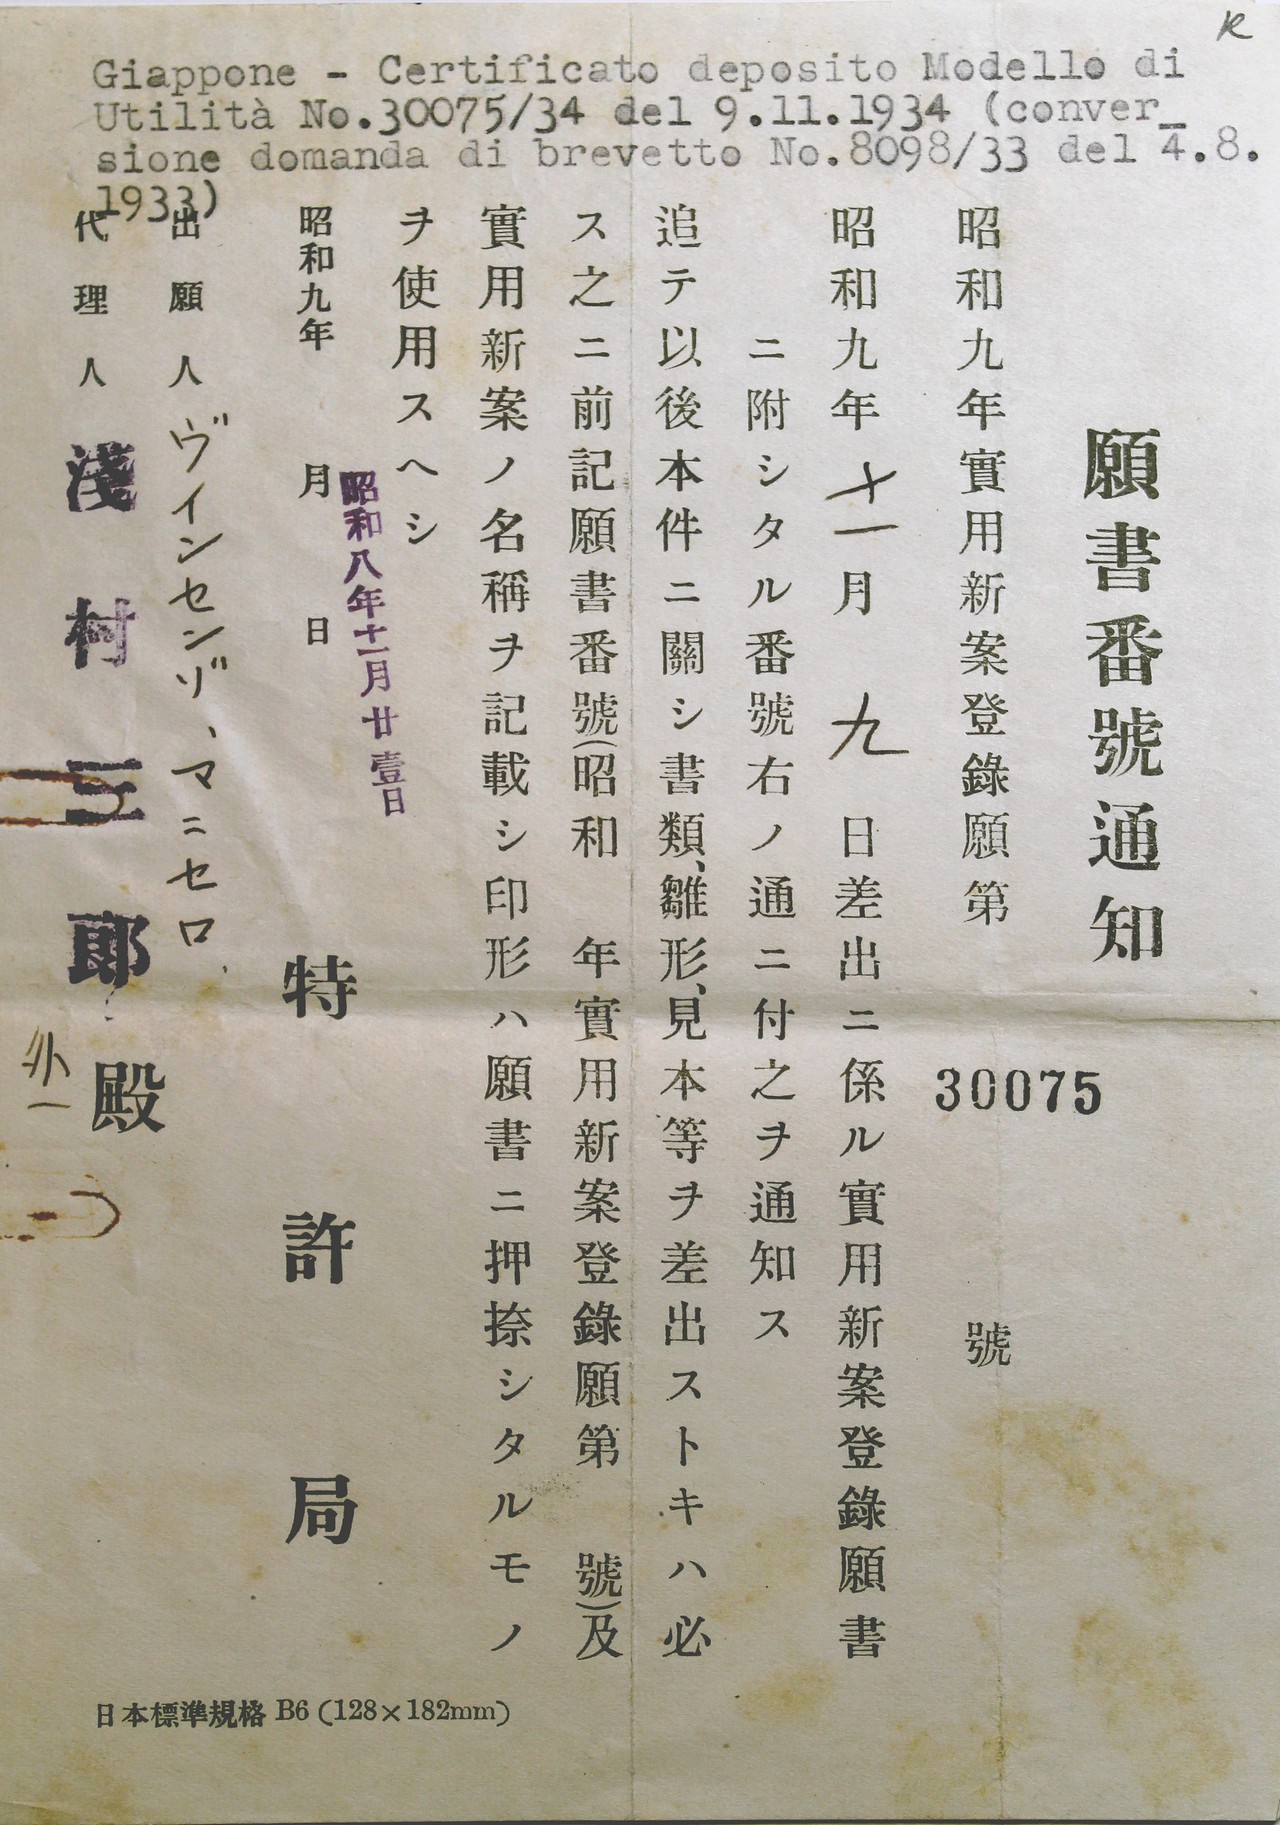 R
Giappone - Certificato deposito Modello di
Utilità No.30075/34 del 9.11.1934 (conver_
sione domanda di brevetto No.8098/33 del 4.8.
1933)
願書番號通知
昭和九年實用新案登錄願第30075號
昭和九年十一月九日差出ニ係ル實用新案登錄願書
ニ附シタル番號右ノ通ニ付之ヲ通知ス
追テ以後本件ニ關シ書類、雛形、見本等ヲ差出ストキハ必
ス之ニ前記願書番號(昭和 年實用新案登錄願第 號)及
實用新案ノ名稱ヲ記載シ印形ハ願書ニ押捺シタルモノ
ヲ使用スヘシ
昭和八年十一月廿壹日
昭和九年 月 日
特許局
出願人 ヴインセンゾ、マニセロ、
代理人 淺村三郎殿
外一
日本標準規格 B6 (128×182mm)